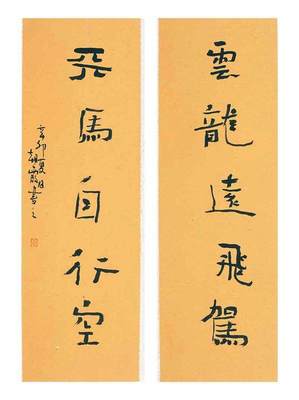 雲龍遠飛駕
天馬自行空
辛卯夏月書之